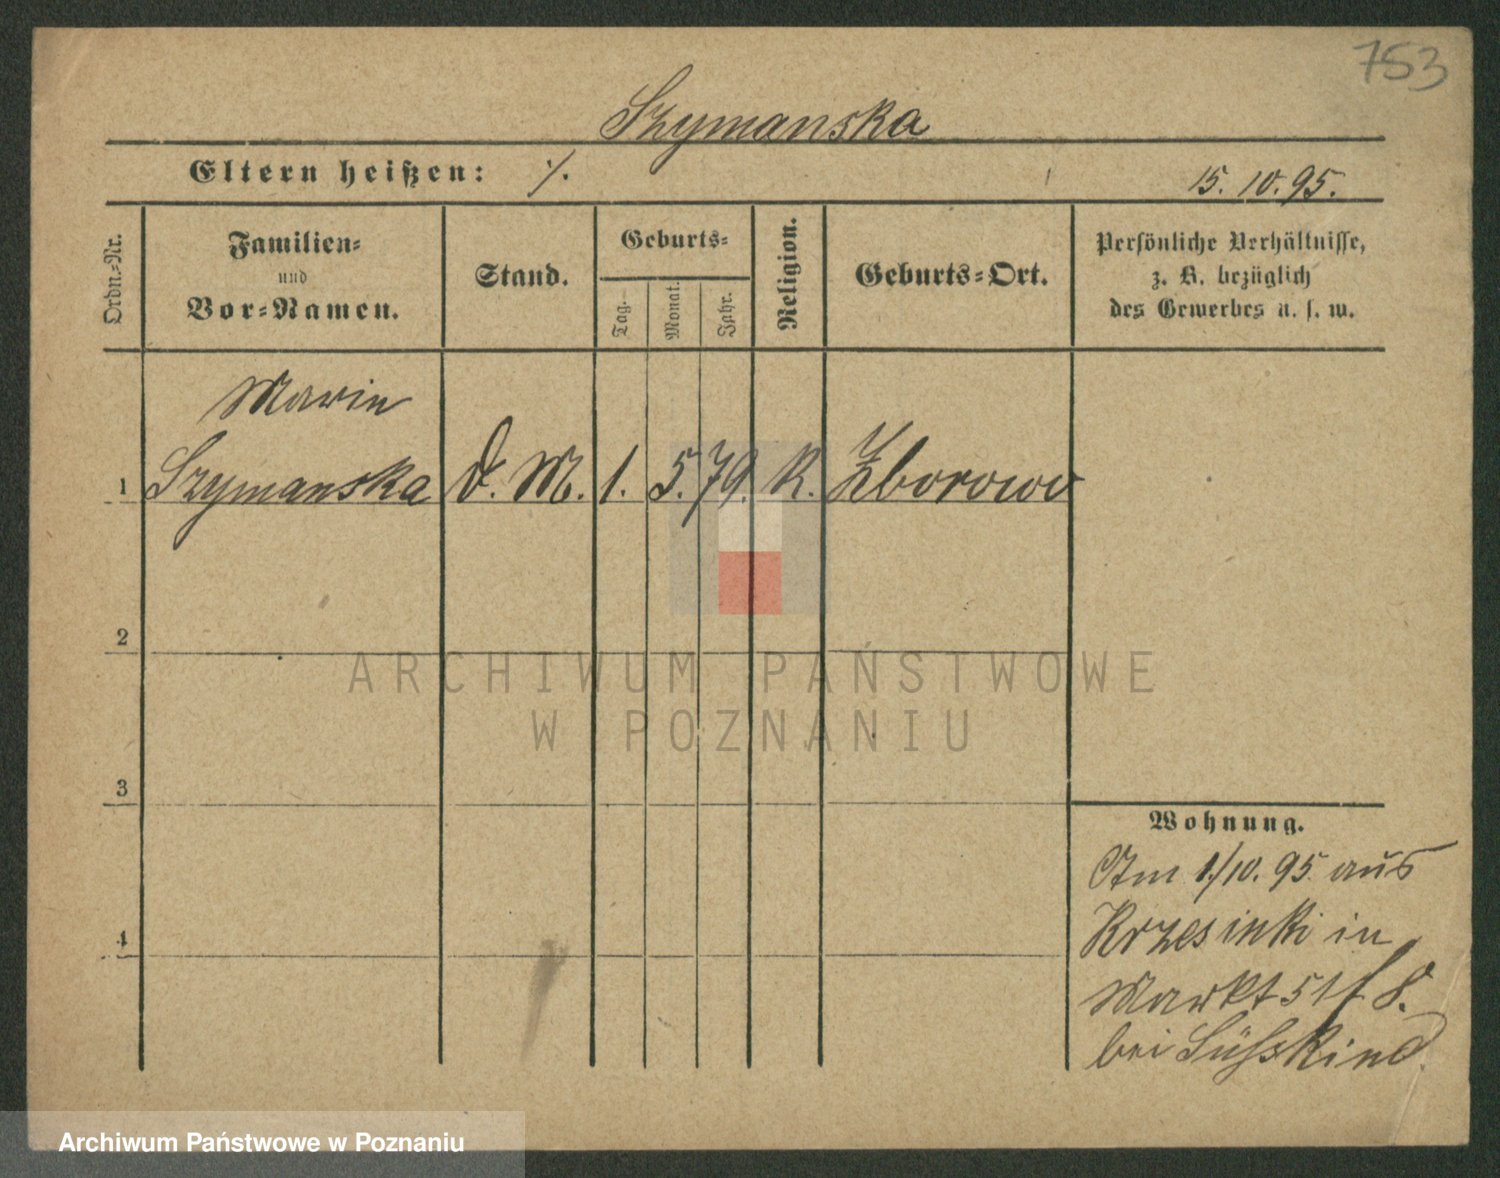 753
Szymanska
Eltern heißen: ·/.
15. 10. 95.
Ordn.-Nr.
Familien-
und
Vor-Namen.
Stand.
Geburts-
Tag.
Monat.
Jahr.
Religion.
Geburts-Ort.
Persönliche Verhältnisse,
z. B. bezüglich
des Gewerbes u. s. w.
Marie
1 Szymanska D. M. 1. 5. 79. K. Zborowo
2
3
4
Wohnung.
Am 1./10. 95 aus
Krzesinki in
Markt 51
bei Süßkind.
ARCHIWUM PAŃSTWOWE
W POZNANIU
Archiwum Państwowe w Poznaniu